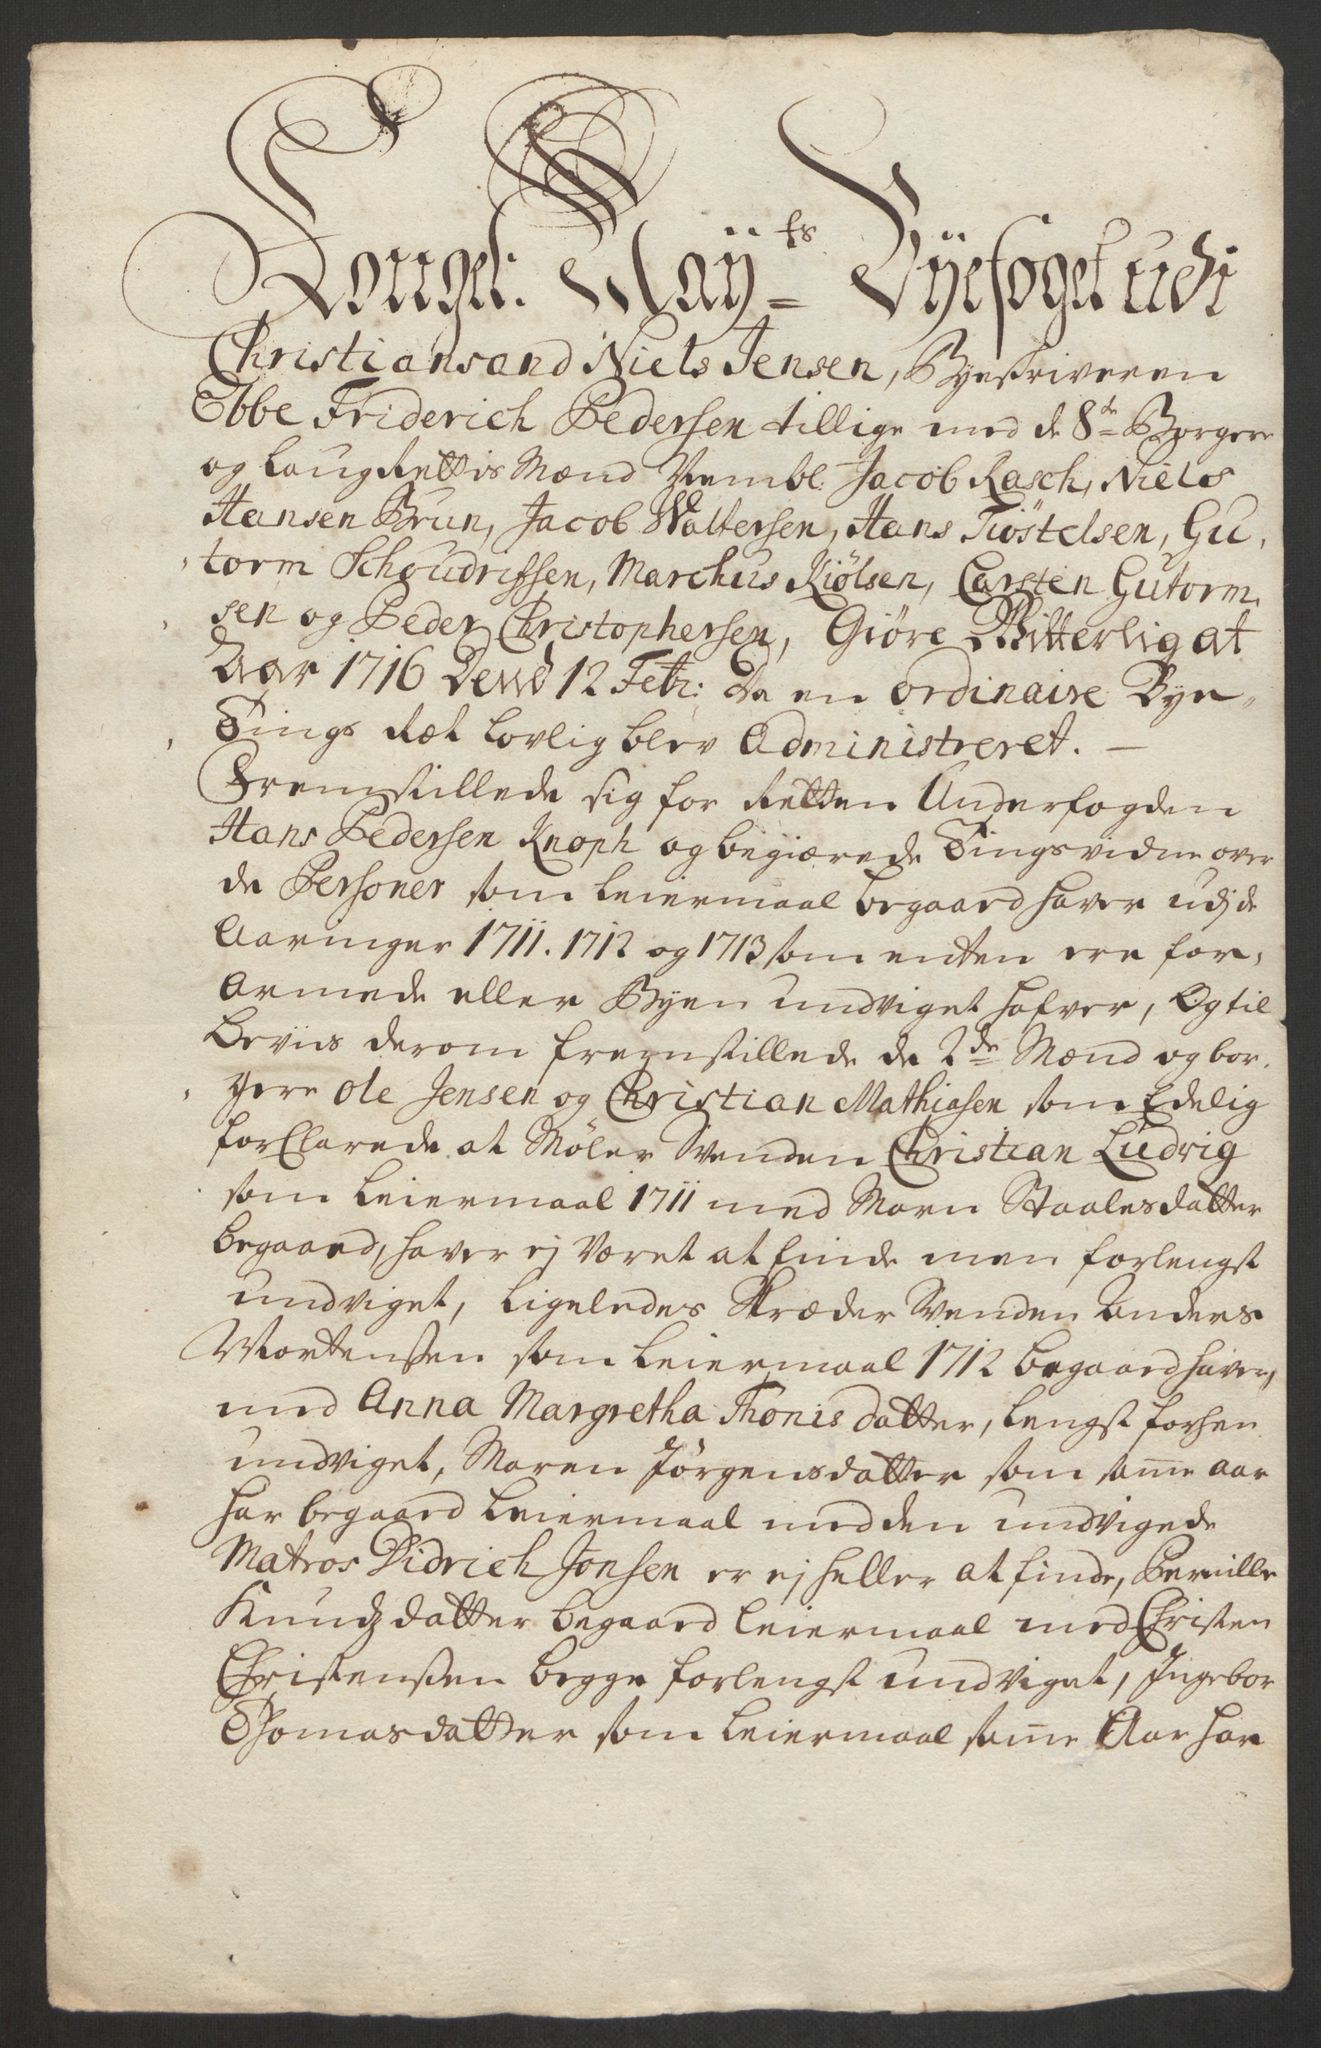 Kongel: Maÿts Bÿefoget udi
Christiansand Niels Jensen, Byeskriveren
Ebbe Friderich Pedersen tillige med de 8te Borgere
og LaugRettis Mænd Nembl: Jacob Rasch, Niels
Hansen Brun, Jacob Woltersen, Hans Tiøstelsen, Gu,
torm Schoudrifsen, Marchus Kiølsen, Carsten Gutorm,
sen og Peder Christophersen, Giøre Witterlig at
Aar 1716 Dend 12 Febr: Da en ordinaire Bye-
Tings Ræt lovlig blev Administreret. —
Fremstillede sig for Retten Underfogden
Hans Pedersen Knoph og begiærede Tingsvidne over
de Personer som Leiermaal begaaed haver udj de
Aaringer 1711. 1712 og 1713 som enten ere for,
armede eller Byen undviget hafver, Og til
Beviis derom fremstillede de 2de Mænd og bor,
gere Ole Jensen og Christian Mathiasen som Edelig
forClarede at Møler Svenden Christian Ludvig
som Leiermaal 1711 med Maren Staalesdatter
begaaed, haver ej Været at finde men forlengst
undviget, ligeledes Skræder Svenden Anders
Mortensen som Leiermaal 1712 begaaed haver,
med Anna Margretha Thonis datter, lengst forhen
undviget, Maren Jørgensdatter som samme aar
har begaaed Leiermaal med den undvigede
Matros Didrich Jonsen er ej heller at finde, Pernille
Knudz datter begaaed Leiermaal med Christen
Christensen begge forlengst undviget, Ingebor
Thomasdatter som Leiermaal samme Aar har